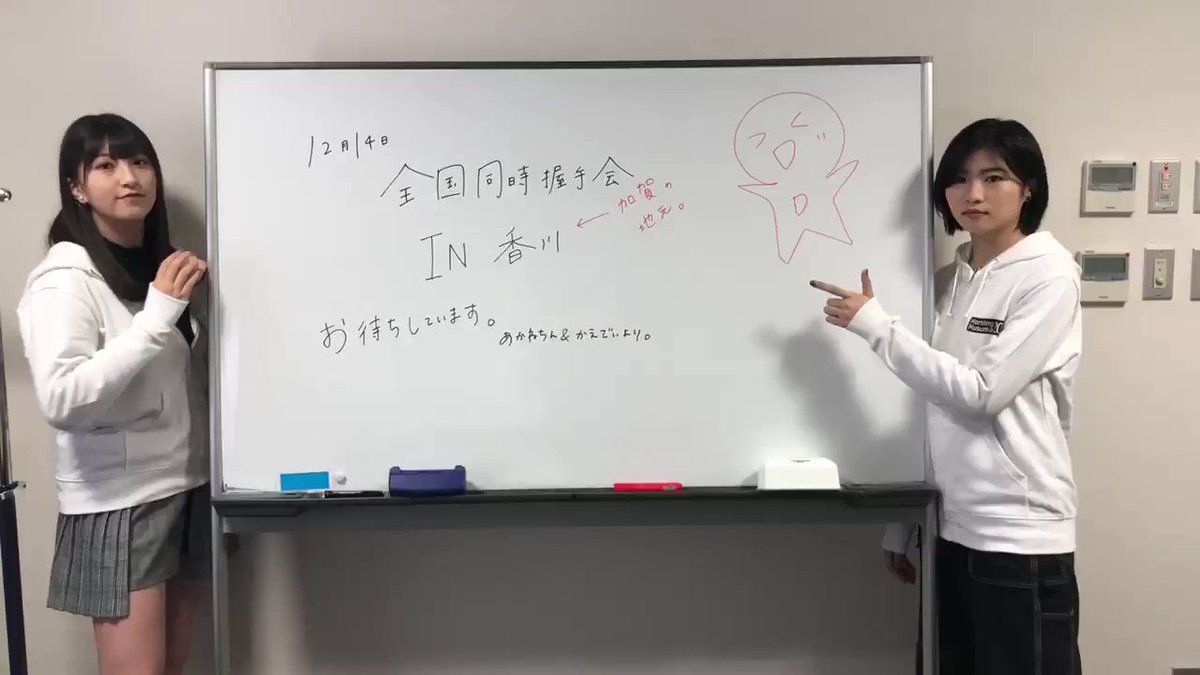 12月14日
全国同時握手会
IN 香川
← 加賀の
地元。
お待ちしています。
あかねちん&かえでぃより。
Morning
Musume